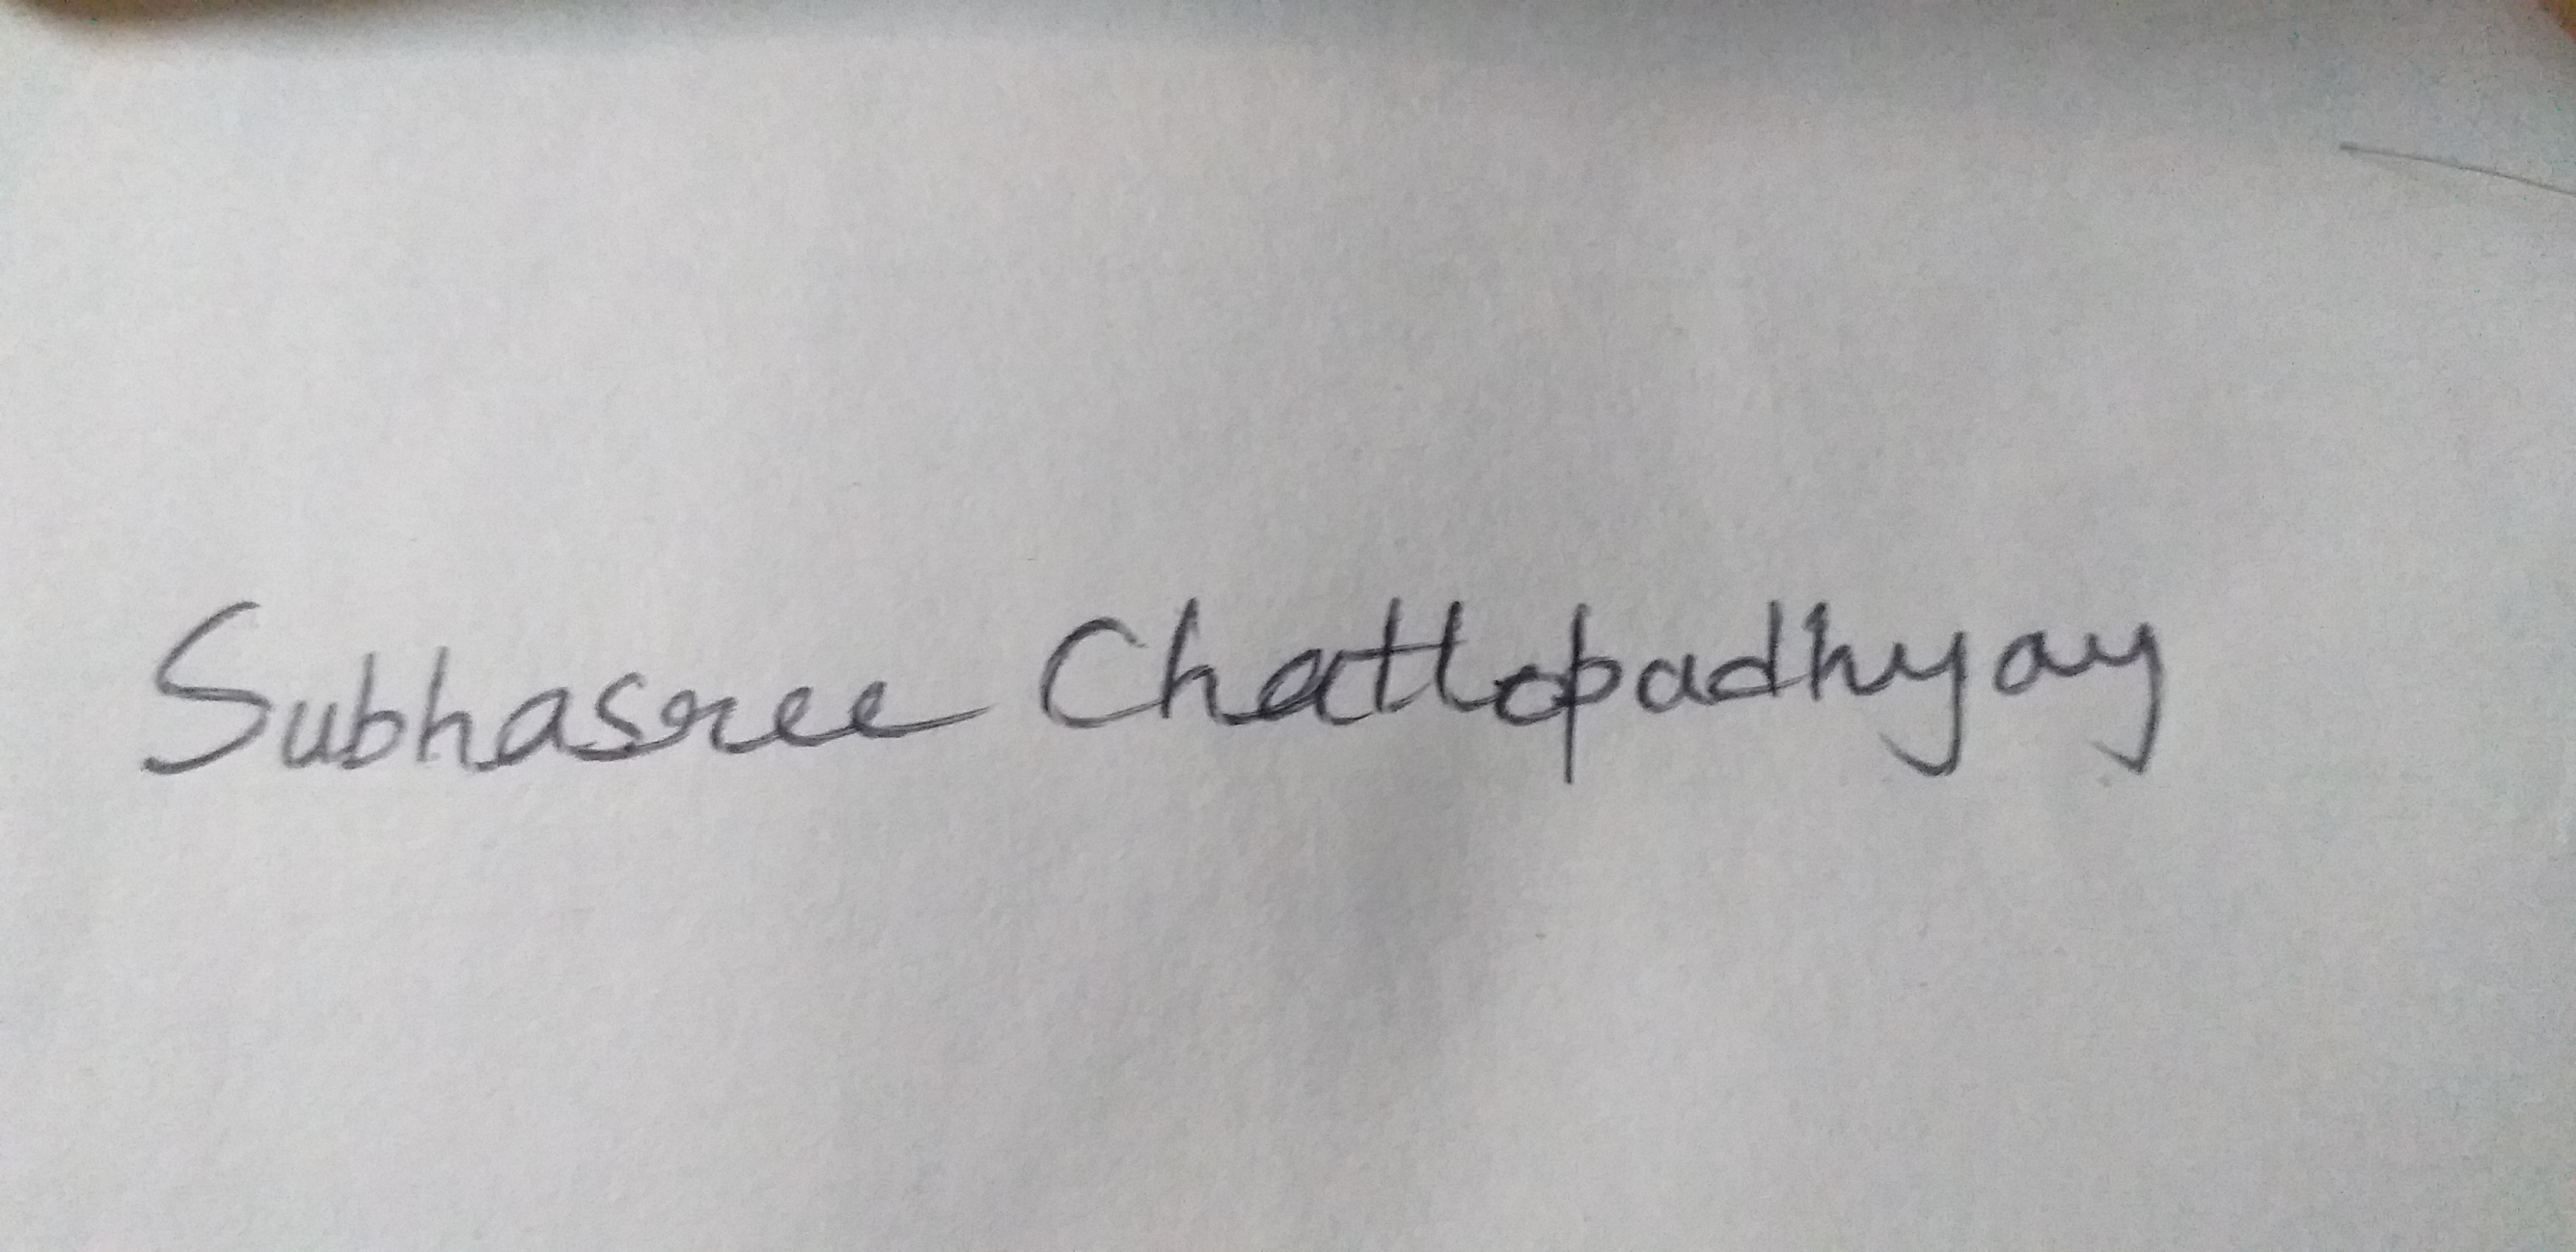 Subhasree Chattopadhyay